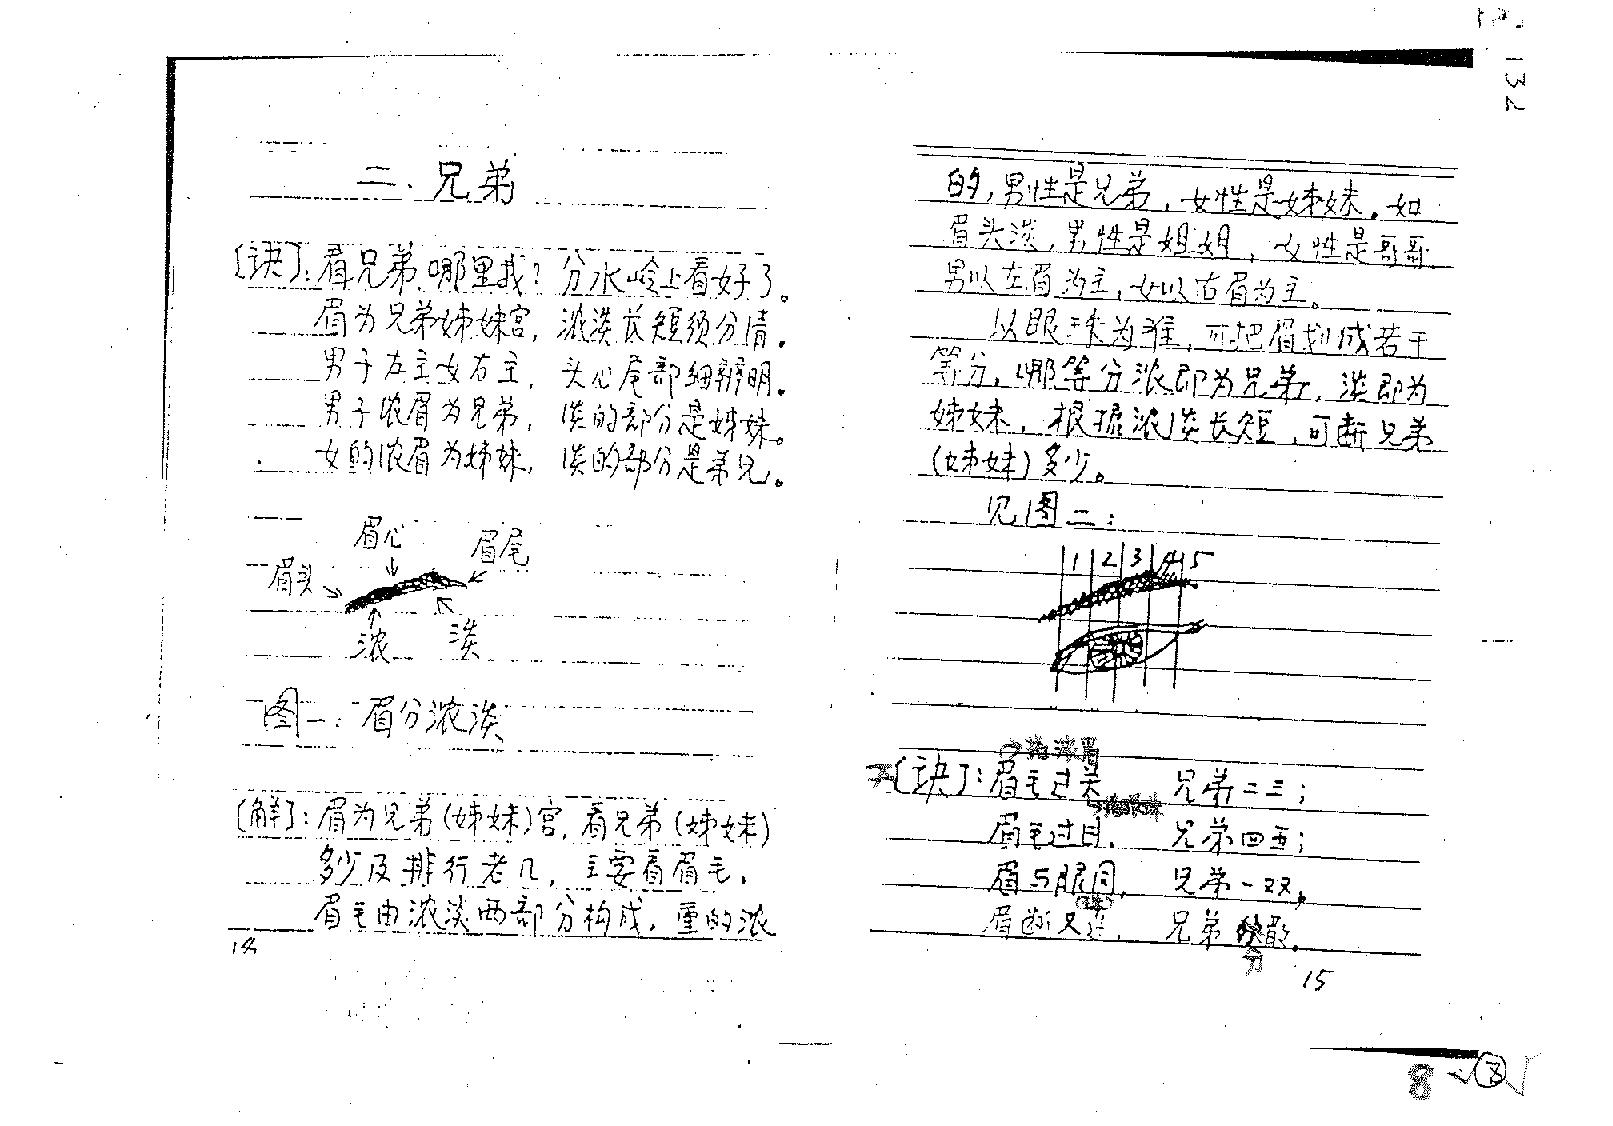 132
二、兄弟
〔诀〕：看兄弟哪里找？分水岭上看好了。
眉为兄弟姊妹宫，浓淡长短须分清。
男子左主女右主，头心尾部细辨明。
男子浓眉为兄弟，淡的部分是姊妹。
女的浓眉为姊妹，淡的部分是弟兄。
眉心
眉尾
眉头
浓
淡
图一：眉分浓淡
〔解〕：眉为兄弟(姊妹)宫，看兄弟(姊妹)
多少及排行老几，主要看眉毛，
眉毛由浓淡两部分构成，重的浓
14
的，男性是兄弟，女性是姊妹。如
眉头淡，男性是姐姐，女性是哥哥
男以左眉为主，女以右眉为主。
以眼球为准，可把眉划成若干
等分，哪等分浓即为兄弟，淡即为
姊妹，根据浓淡长短，可断兄弟
(姊妹)多少。
见图二：
1 2 3 4 5
〔诀〕：眉毛过关 兄弟二三；
眉毛过目， 兄弟四五；
眉与眼同， 兄弟一双，
眉断又连， 兄弟散。
分
15
8